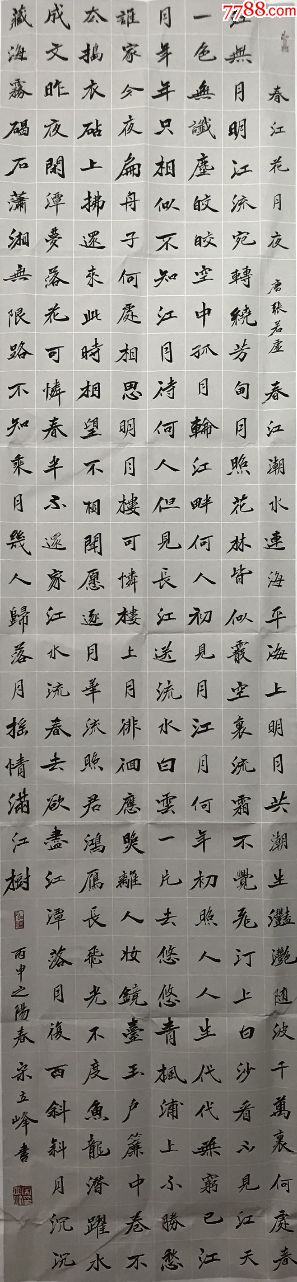 7788.com
春江花月夜 唐張若虛 春江潮水連海平海上明月共潮生灩灩随波千萬裏何處春
江無月明江流宛轉繞芳甸月照花林皆似霰空裏流霜不覺飛汀上白沙看不見江天
一色無纖塵皎皎空中孤月輪江畔何人初見月江月何年初照人人生代代無窮已江
月年年只相似不知江月待何人但見長江送流水白雲一片去悠悠青楓浦上不勝愁
誰家今夜扁舟子何處相思明月樓可憐樓上月徘徊應照離人妝鏡臺玉户簾中卷不
去搗衣砧上拂還來此時相望不相聞願逐月華流照君鴻雁長飛光不度魚龍潛躍水
成文昨夜閑潭夢落花可憐春半不還家江水流春去欲盡江潭落月復西斜斜月沉沉
藏海霧碣石瀟湘無限路不知乘月幾人歸落月摇情滿江樹 丙申之陽春 宋立峰書